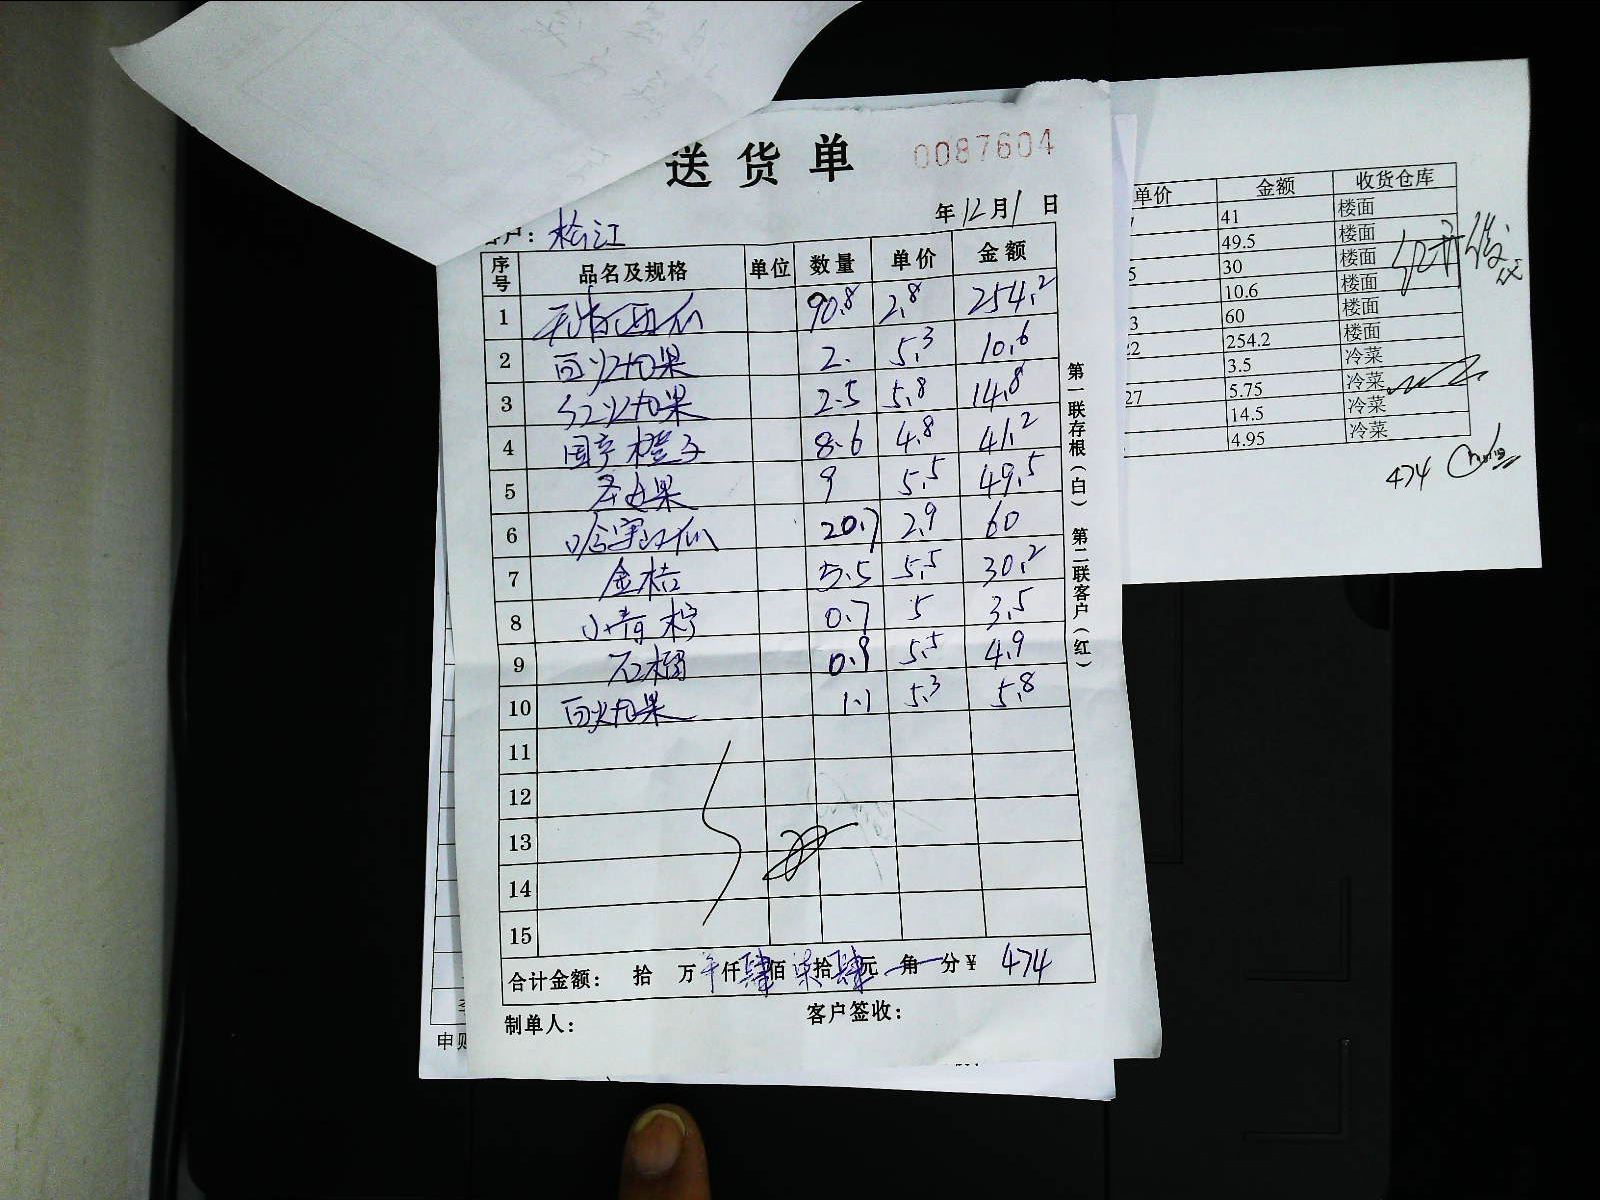 送货单 0087604
年12月1日
客户：松江
序号 品名及规格 单位 数量 单价 金额
1 无籽西瓜 90.8 2.8 254.2
2 白火龙果 2. 5.3 10.6
3 红火龙果 2.5 5.8 14.8
4 国产橙子 8.6 4.8 41.2
5 圣女果 9 5.5 49.5
6 哈密瓜 20.7 2.9 60
7 金桔 5.5 5.5 30.2
8 小青柠 0.7 5 3.5
9 石榴 0.9 5.5 4.9
10 白火龙果 1.1 5.3 5.8
11
12
13
14
15
合计金额： 拾 万 仟肆佰柒拾肆元 角 分￥ 474
制单人： 客户签收：
第一联存根（白） 第二联客户（红）
单价 金额 收货仓库
41 楼面
49.5 楼面
5 30 楼面
10.6 楼面
3 60 楼面
22 254.2 楼面
3.5 冷菜
27 5.75 冷菜
14.5 冷菜
4.95 冷菜
474
申购